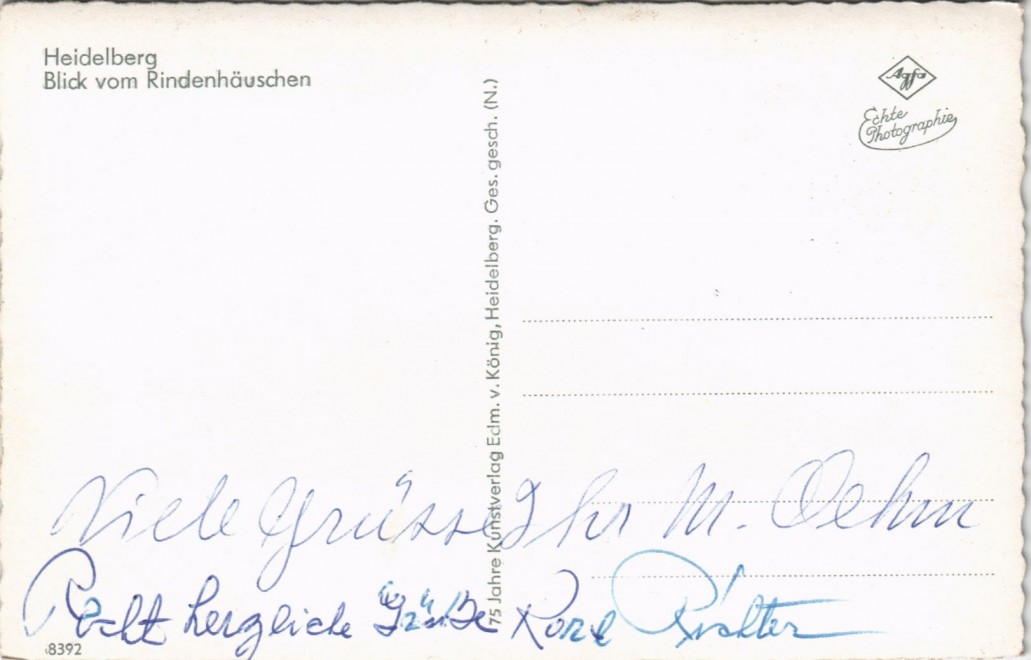 Heidelberg
Blick vom Rindenhäuschen
Agfa
Echte
Photographie
75 Jahre Kunstverlag Edm. v. König, Heidelberg. Ges. gesch. (N.)
Viele Grüsse Ihr M. Oehm
Recht herzliche Grüße Karl Richter
8392